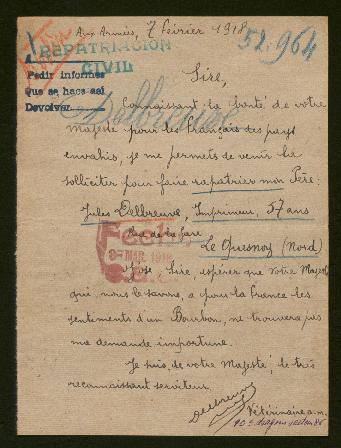 Aux Armées, 7 Février 1918
52.964
REPATRIACION
CIVIL
Pedir informes
Que se hace así
Devolver
Delbreuve
Sire,
Connaissant la bonté de votre
Majesté pour les français des pays
envahis, je me permets de venir la
solliciter pour faire rapatrier mon Père:
Jules Delbreuve, Imprimeur, 57 ans
Rue de la gare
Le Quesnoy (Nord)
Fecha
8-MAR. 1918
J'ose, Sire, espérer que votre Majesté
qui, nous le savons, a pour la France les
sentiments d'un Bourbon, ne trouvera pas
ma demande importune.
Je suis, de votre Majesté, le très
reconnaissant serviteur.
Delbreuve
Vétérinaire a.m.
dragons secteur